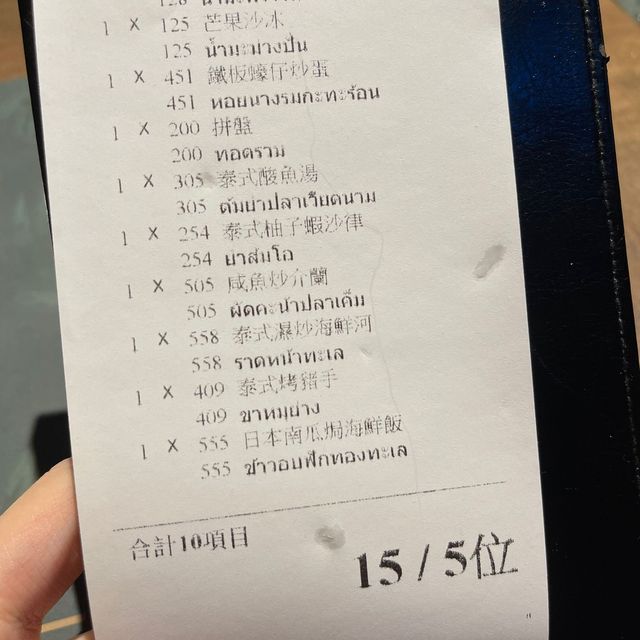 1 X 125 芒果沙冰
125 น้ำมะม่วงปั่น
1 X 451 鐵板蠔仔炒蛋
451 หอยนางรมกะทะร้อน
1 X 200 拼盤
200 ทอดรวม
1 X 305 泰式酸魚湯
305 ต้มยำปลาเวียดนาม
1 X 254 泰式柚子蝦沙律
254 ยำส้มโอ
1 X 505 咸魚炒介蘭
505 ผัดคะน้าปลาเค็ม
1 X 558 泰式濕炒海鮮河
558 ราดหน้าทะเล
1 X 409 泰式烤豬手
409 ขาหมูย่าง
1 X 555 日本南瓜焗海鮮飯
555 ข้าวอบฟักทองทะเล
合計10項目
15 / 5位